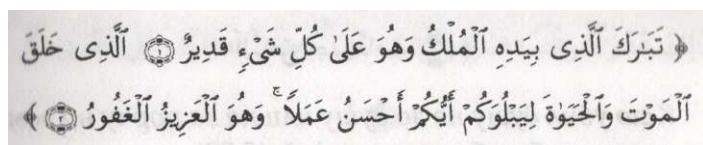 ﴿ تَبَٰرَكَ ٱلَّذِى بِيَدِهِ ٱلْمُلْكُ وَهُوَ عَلَىٰ كُلِّ شَىْءٍ قَدِيرٌ ۝١ ٱلَّذِى خَلَقَ
ٱلْمَوْتَ وَٱلْحَيَوٰةَ لِيَبْلُوَكُمْ أَيُّكُمْ أَحْسَنُ عَمَلًا ۚ وَهُوَ ٱلْعَزِيزُ ٱلْغَفُورُ ۝٢ ﴾